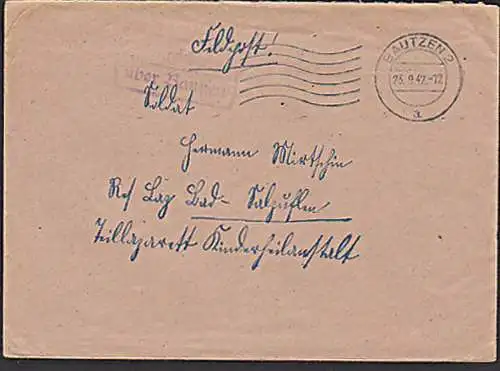 Feldpost!
BAUTZEN 2
23.9.42.-12
a
über Bautzen
Soldat
Hermann Mirtschin
Res Laz Bad-Salzuflen
Teillazarett Kinderheilanstalt